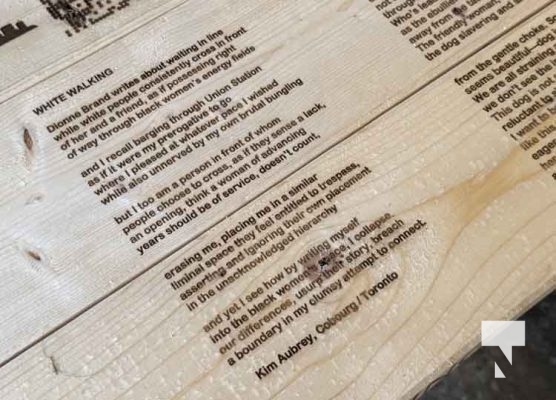 WHITE WALKING
Dionne Brand writes about waiting in line
while white people consistently cross in front
of her and a friend, as if possessing right
of way through black women's energy fields
and I recall barging through Union Station
as if it were my prerogative to go
where I pleased at whatever pace I wished
while also unnerved by my own bridal bungling
but I too am a person in front of whom
people choose to cross, as if they sense a lack,
an opening, think a woman of advancing
years should be of service, doesn't count,
erasing me, placing me in a similar
liminal space they feel entitled to trespass,
asserting and ignoring their own placement
in the unacknowledged hierarchy
and yet I see how by writing myself
into the black women's place, I collapse
our differences, usurp their story, breach
a boundary in my clumsy attempt to connect.
Kim Aubrey, Cobourg / Toronto
through
Who's lea
as the ebullien
away from the
The friendly woman,
the dog slavering and
from the gentle choke. S
seems beautiful—do
We are all straini
we don't see the
This dog is not
reluctant to
I want to
like the
eager
ha